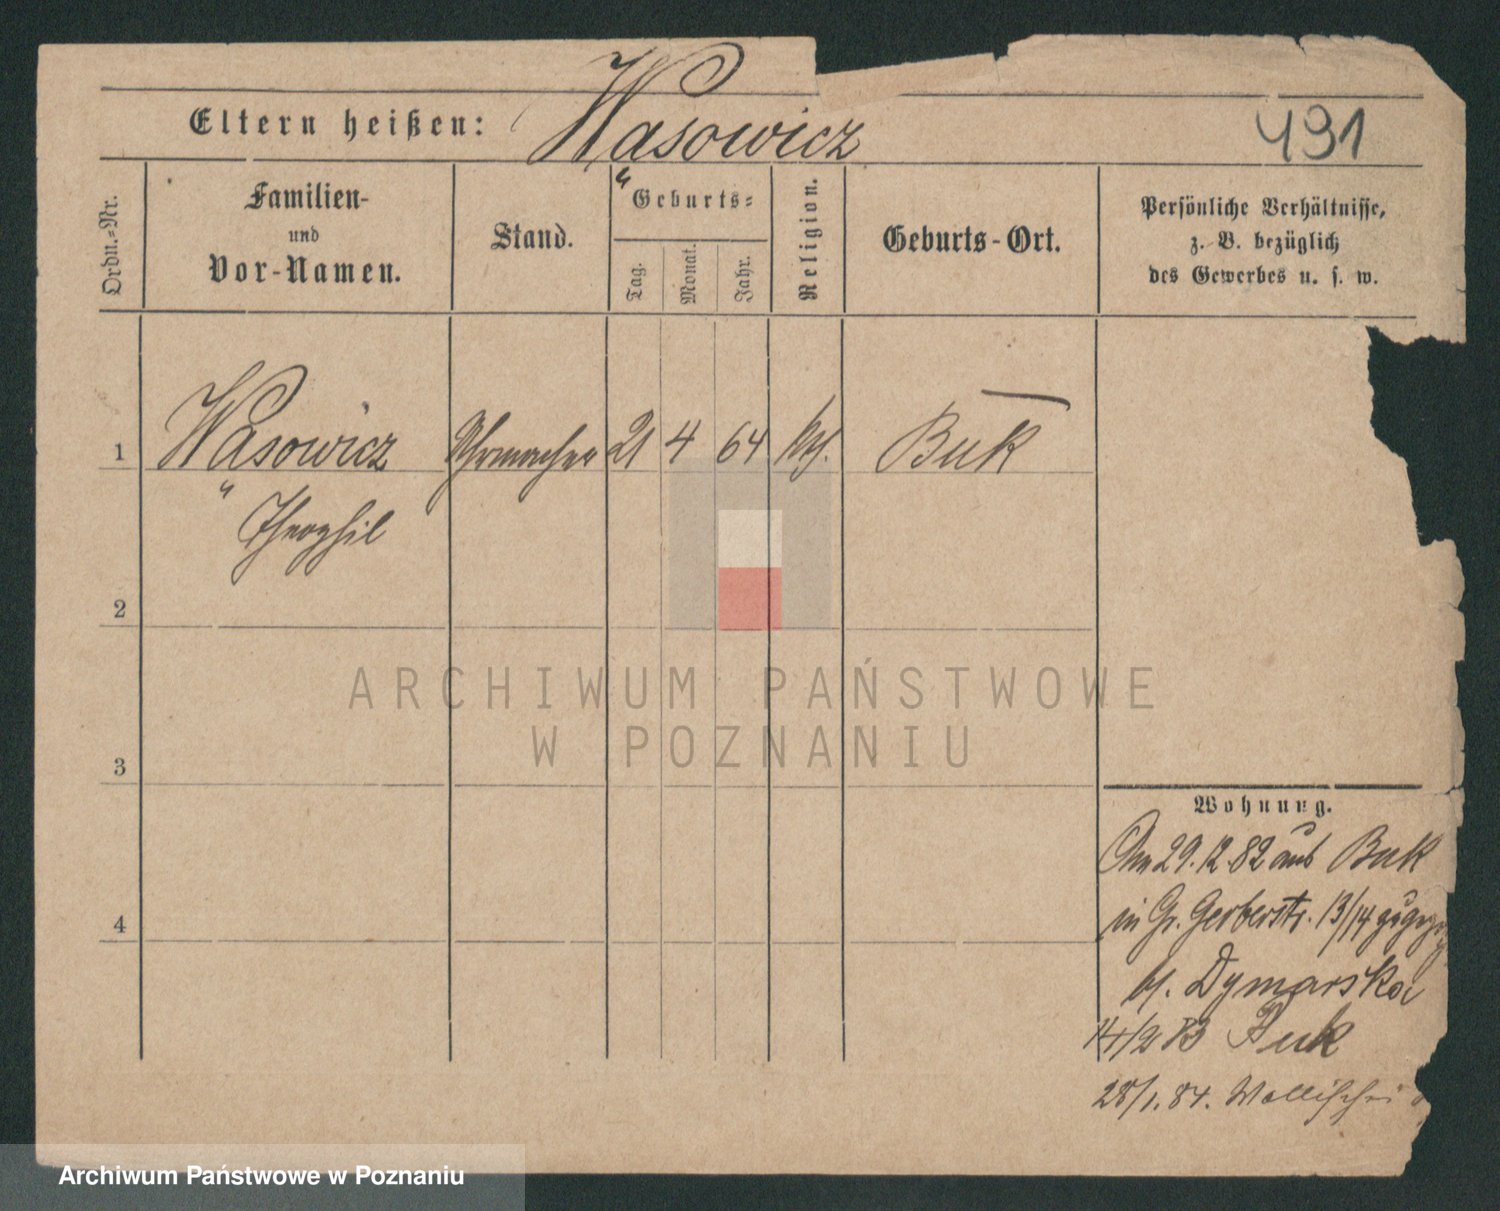 Eltern heißen: Wasowicz
491
Ordn.-Nr.
Familien-
und
Vor-Namen.
Stand.
Geburts-
Tag.
Monat.
Jahr.
Religion.
Geburts-Ort.
Persönliche Verhältnisse,
z. B. bezüglich
des Gewerbes u. s. w.
1 Wasowicz Uhrmacher 21 4 64 kth. Buk
Theophil
2
ARCHIWUM PAŃSTWOWE
W POZNANIU
3
Wohnung.
Am 29.12.82 aus Buk
in Gr. Gerberstr. 13/14 zugezog
4
bf. Dymarska
14/2 83 Buk
28/1. 84. Wallischei
Archiwum Państwowe w Poznaniu